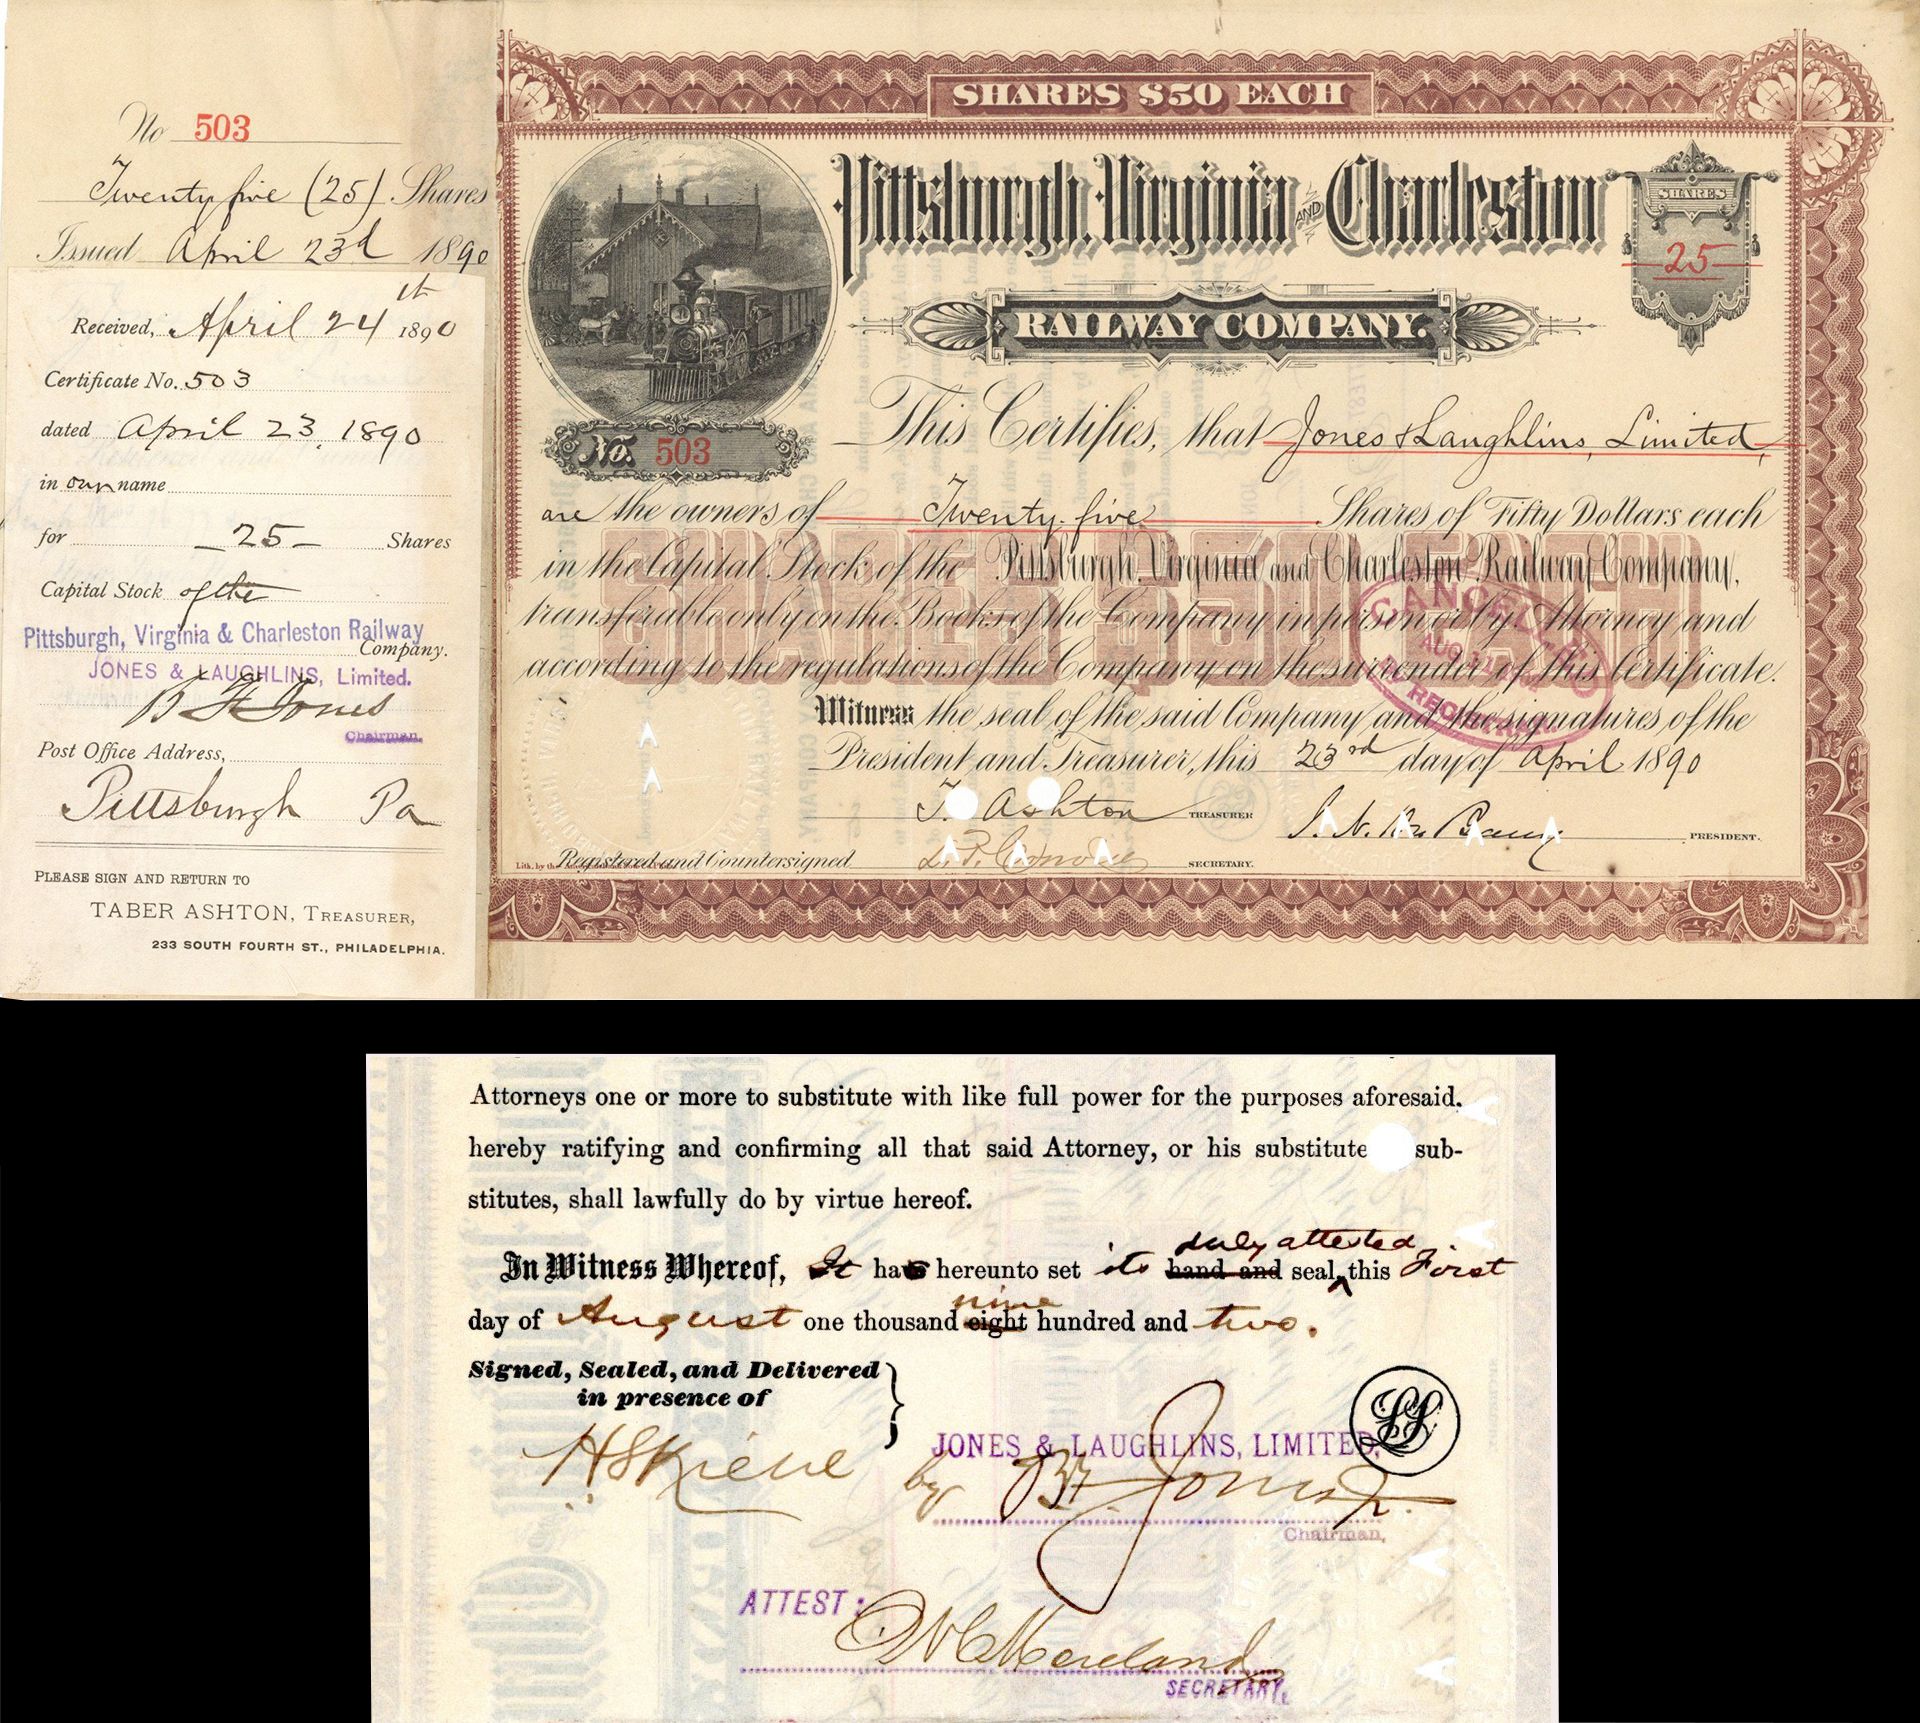 No 503
Twenty five (25) Shares
Issued April 23d 1890
Received, April 24th 1890
Certificate No. 503
dated April 23, 1890
in our name
for 25 Shares
Capital Stock of the
Pittsburgh, Virginia & Charleston Railway
Company.
JONES & LAUGHLINS, Limited.
B F Jones
Chairman.
Post Office Address,
Pittsburgh Pa
PLEASE SIGN AND RETURN TO
TABER ASHTON, TREASURER,
233 SOUTH FOURTH ST., PHILADELPHIA.
SHARES $50 EACH
Pittsburgh, Virginia AND Charleston
RAILWAY COMPANY.
SHARES
25
No. 503
This Certifies, that Jones & Laughlins, Limited,
are the owners of Twenty-five Shares of Fifty Dollars each
in the Capital Stock of the Pittsburgh, Virginia and Charleston Railway Company,
transferable only on the Books of the Company in person or by Attorney and
according to the regulations of the Company on the surrender of this Certificate.
SHARES $50 EACH
Witness the seal of the said Company and the signatures of the
President and Treasurer, this 23rd day of April 1890
T. Ashton TREASURER
PRESIDENT.
Registered and Countersigned SECRETARY.
Attorneys one or more to substitute with like full power for the purposes aforesaid,
hereby ratifying and confirming all that said Attorney, or his substitute sub-
stitutes, shall lawfully do by virtue hereof.
duly attested
In Witness Whereof, It has hereunto set its hand and seal, this First
nine
day of August one thousand eight hundred and two.
Signed, Sealed, and Delivered
in presence of
JONES & LAUGHLINS, LIMITED,
by B F Jones Jr.
Chairman,
ATTEST:
SECRETARY.